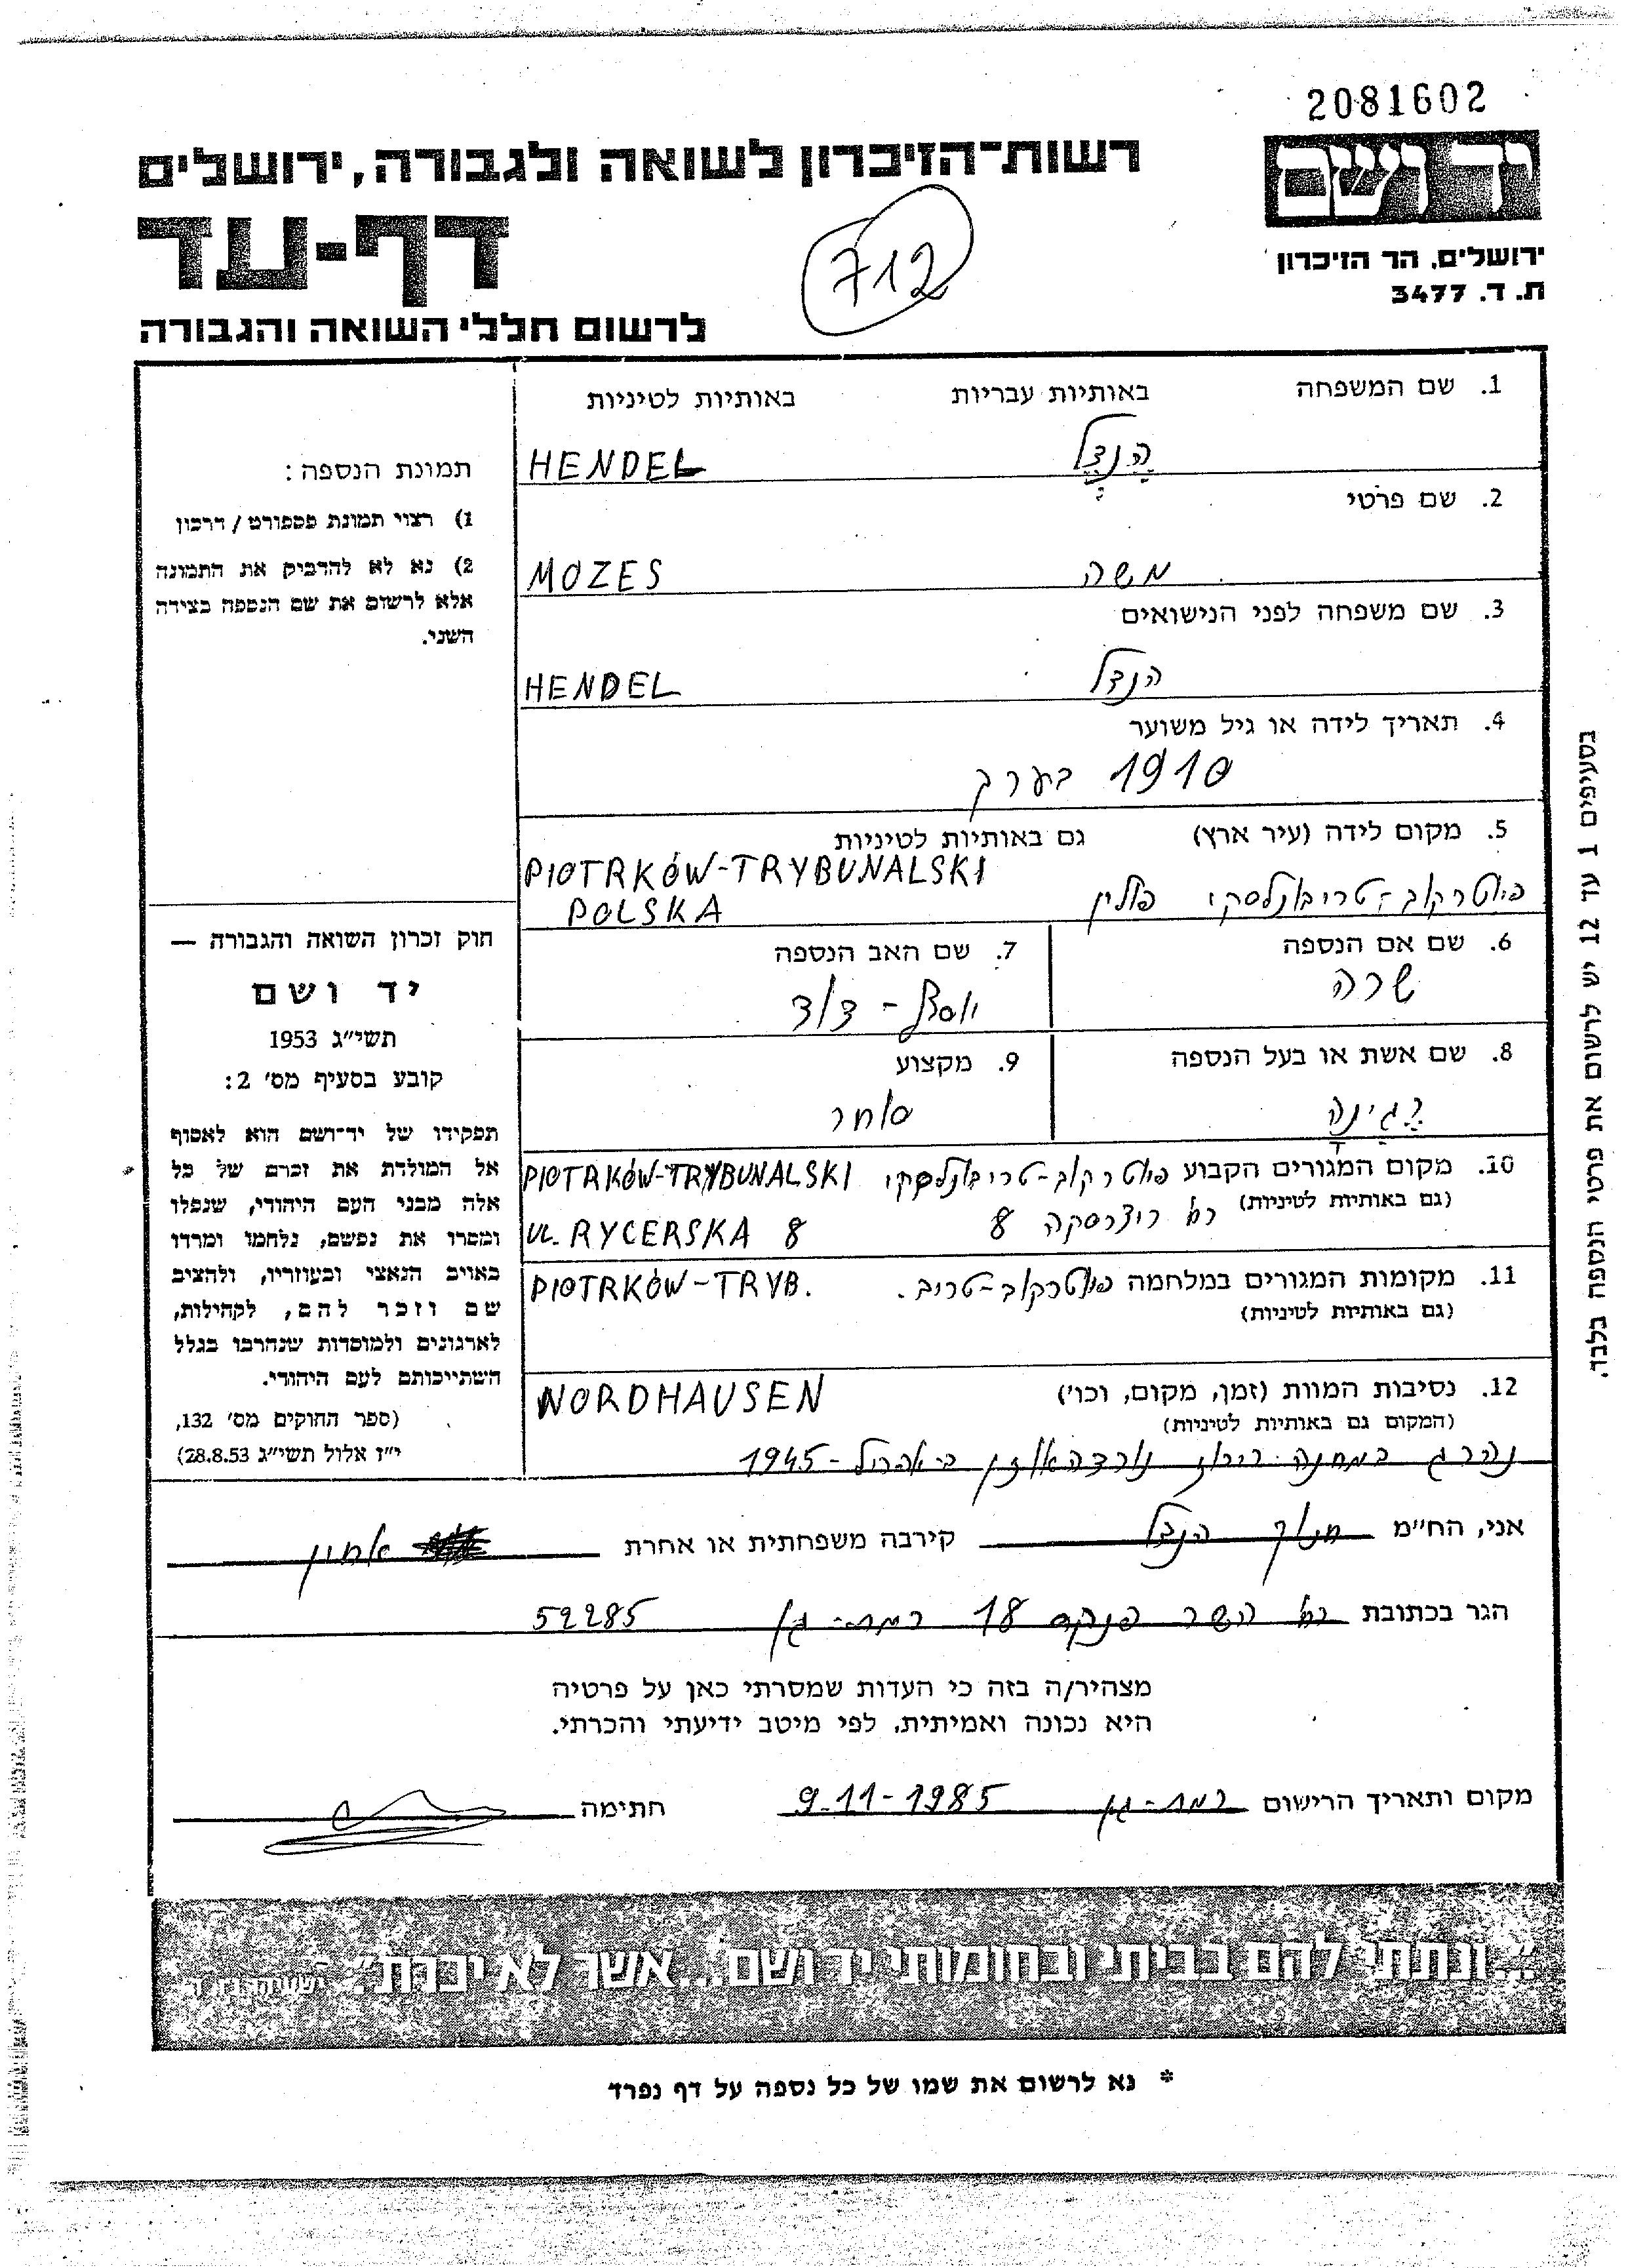 2081602
יד ושם
ירושלים. הר הזיכרון
ת. ד. 3477
רשות-הזיכרון לשואה ולגבורה, ירושלים
דף-עד
712
לרשום חללי השואה והגבורה
1. שם המשפחה באותיות עבריות באותיות לטיניות
הַנְדֶל HENDEL
2. שם פרטי
משה MOZES
3. שם משפחה לפני הנישואים
הנדל HENDEL
4. תאריך לידה או גיל משוער
1910 בערך
5. מקום לידה (עיר ארץ) גם באותיות לטיניות
PIOTRKÓW-TRYBUNALSKI
פיוטרקוב-טריבונלסקי פולין POLSKA
6. שם אם הנספה
שרה
7. שם האב הנספה
יוסף-דוד
8. שם אשת או בעל הנספה
רֶגִינָה
9. מקצוע
סוחר
10. מקום המגורים הקבוע פיוטרקוב-טריבונלסקי PIOTRKÓW-TRYBUNALSKI
(גם באותיות לטיניות) רח' ריצרסקה 8 UL. RYCERSKA 8
11. מקומות המגורים במלחמה פיוטרקוב-טריב. PIOTRKÓW-TRYB.
(גם באותיות לטיניות)
12. נסיבות המוות (זמן, מקום, וכו') NORDHAUSEN
(המקום גם באותיות לטיניות)
נהרג במחנה ריכוז נורדהאוזן ב-אפריל-1945
תמונת הנספה:
1) רצוי תמונת פספורט / דרכון
2) נא לא להדביק את התמונה
אלא לרשום את שם הנספה בצידה
השני.
חוק זכרון השואה והגבורה —
יד ושם
תשי"ג 1953
קובע בסעיף מס' 2:
תפקידו של יד-ושם הוא לאסוף
אל המולדת את זכרם של כל
אלה מבני העם היהודי, שנפלו
ומסרו את נפשם, נלחמו ומרדו
באויב הנאצי ובעוזריו, ולהציב
שם וזכר להם, לקהילות,
לארגונים ולמוסדות שנחרבו בגלל
השתייכותם לעם היהודי.
(ספר החוקים מס' 132,
י"ז אלול תשי"ג 28.8.53)
בסעיפים 1 עד 12 יש לרשום את פרטי הנספה בלבד.
אני, הח"מ חנוך הנדל קירבה משפחתית או אחרת אחיין
הגר בכתובת רח' השר פנקס 18 רמת-גן 52285
מצהיר/ה בזה כי העדות שמסרתי כאן על פרטיה
היא נכונה ואמיתית, לפי מיטב ידיעתי והכרתי.
מקום ותאריך הרישום רמת-גן 9-11-1985 חתימה
"...ונתתי להם בביתי ובחומותי יד ושם...אשר לא יכרת".
* נא לרשום את שמו של כל נספה על דף נפרד